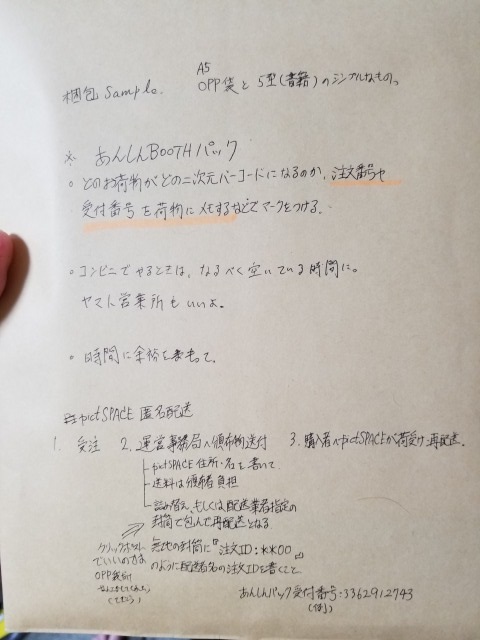 梱包 Sample.
A5
OPP袋と 5型(書籍)のシンプルなもの。
※ あんしんBOOTHパック
○ どのお荷物がどの二次元バーコードになるのか、注文番号や
受付番号を荷物にメモするなどでマークをつける。
○ コンビニでやるときは、なるべく空いている時間に。
ヤマト営業所もいいよ。
○ 時間に余裕をまもって。
pictSPACE 匿名配送
1. 受注 2. 運営事務局へ頒布物送付 3. 購入者へpictSPACEが荷受け、再配送。
pictSPACE 住所・名を書いて
送料は頒布者負担
詰め替え、もしくは配送業者指定の
封筒で包んで再配送となる
クリックポスト
でいいのかな
OPP袋
無地の封筒に『注文ID:**00』
のように配送者名の注文IDを書くこと
あんしんパック受付番号:3362912743
(例)